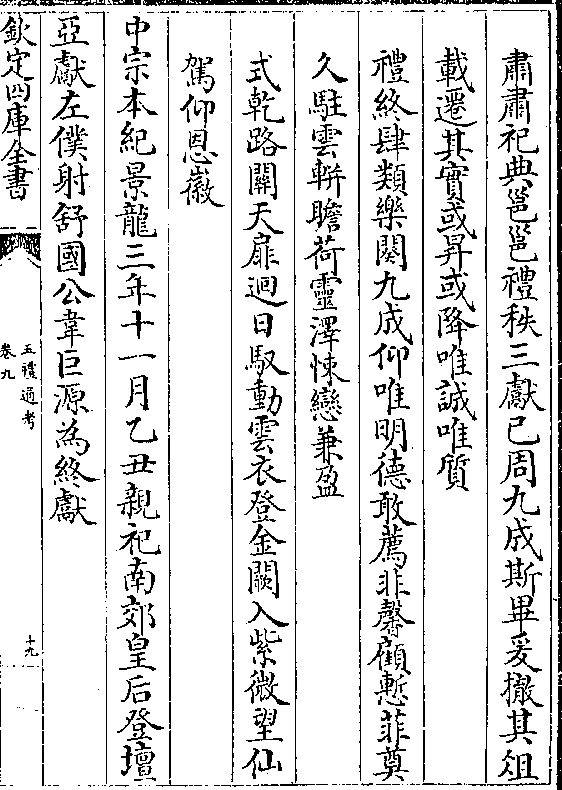 肅肅祀典邕邕禮秩三獻已周九成斯畢爰撤其俎
載遷其實或昇或降唯誠唯質
禮終肆類樂闋九成仰唯明德敢薦非馨顧慙菲奠
久駐雲軿瞻荷靈澤悚戀兼盈
式乾路闢天扉迴日馭動雲衣登金闕入紫微望仙
駕仰恩徽
中宗本紀景龍三年十一月乙丑親祀南郊皇后登壇
亞獻左僕射舒國公韋巨源為終獻
欽定四庫全書
五禮通考
卷九
十九